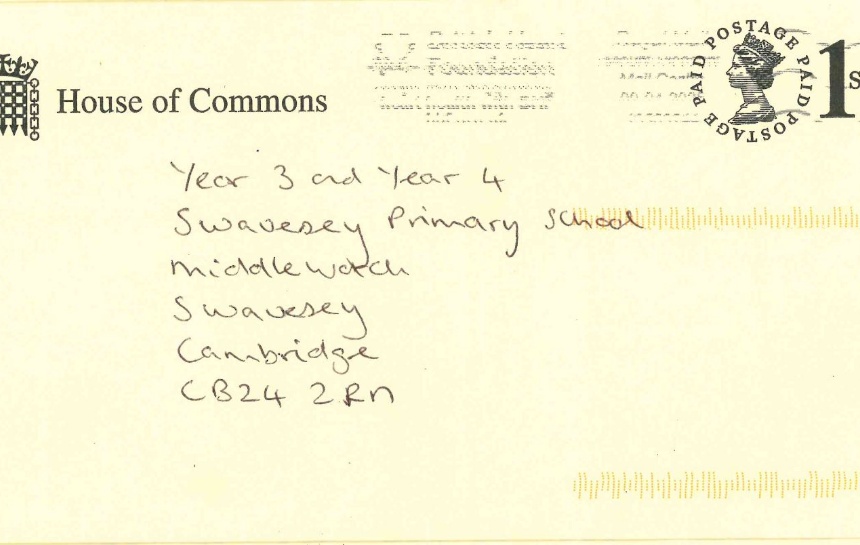 House of Commons
POSTAGE PAID POSTAGE PAID POSTAGE PAID
1s
Foundation
Year 3 and Year 4
Swavesey Primary School
middlewatch
Swavesey
Cambridge
CB24 2RN